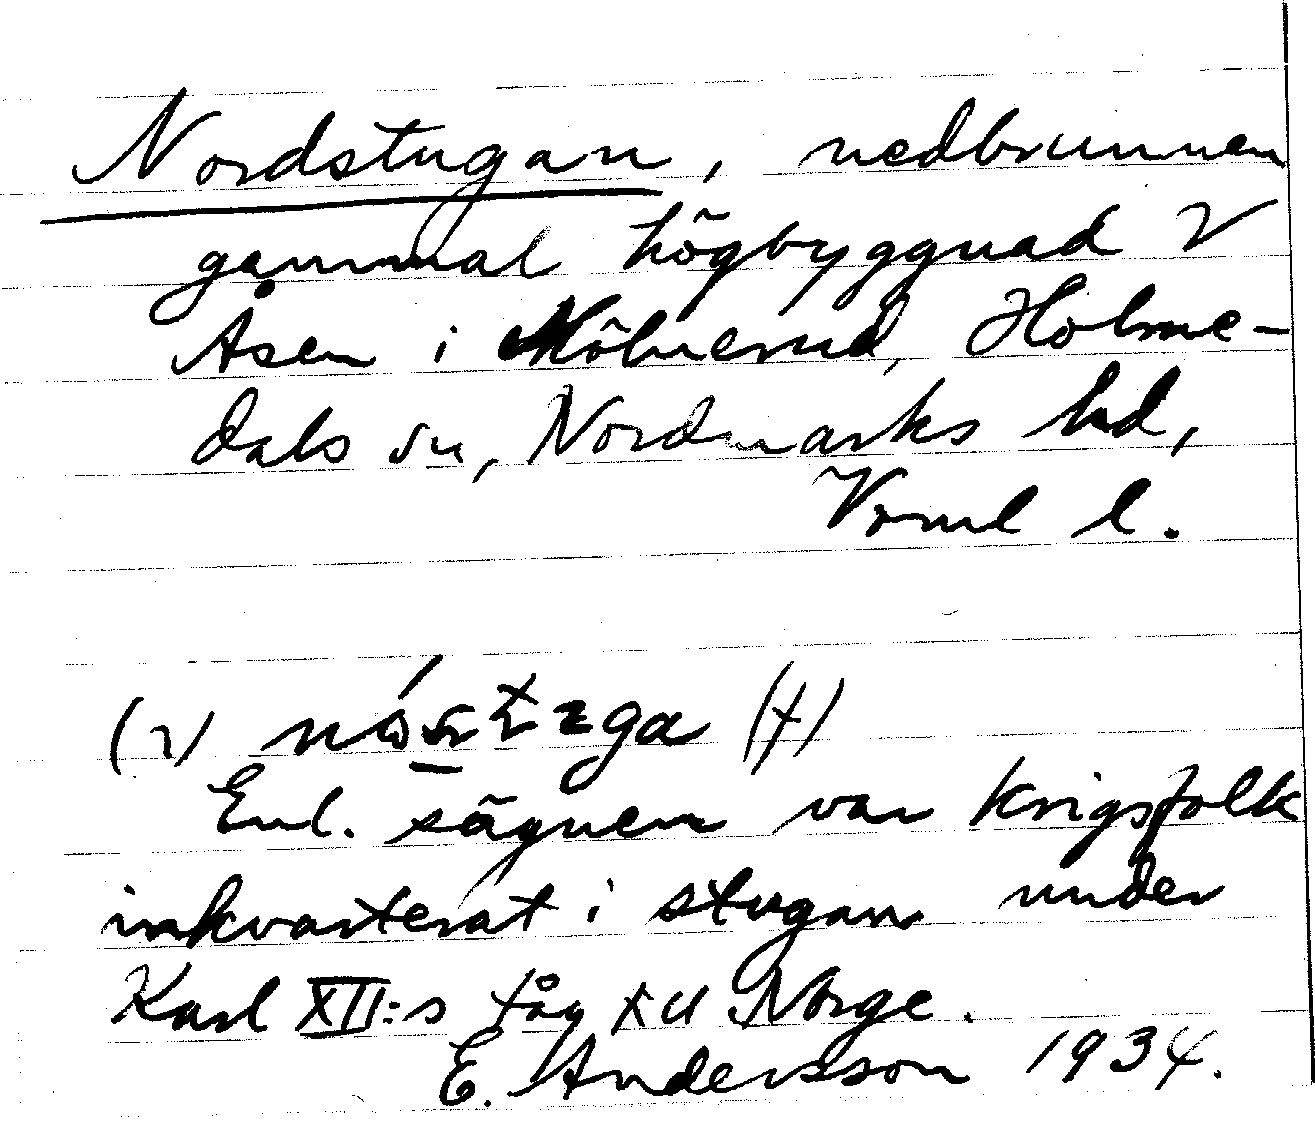 Nordstugan, nedbrunnen
gammal högbyggnad V
Åsen i Mölnerud, Holme-
dals sn, Nordmarks hd,
Vrml l.
Enl. sägnen var krigsfolk
inkvarterat i stugan under
Karl XII:s tåg till Norge.
E. Andersson 1934.